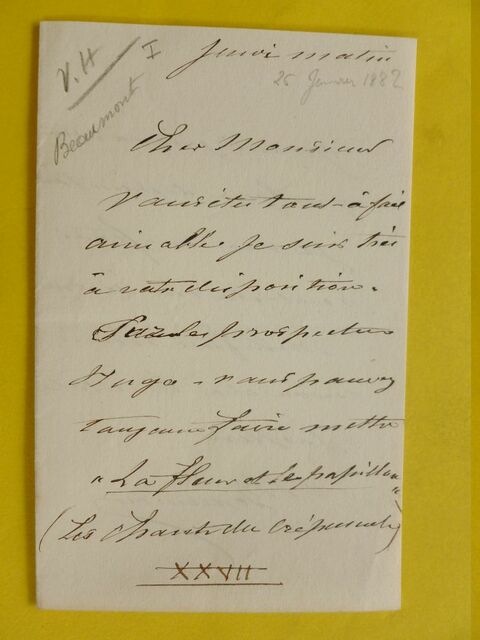 V. H I
Beaumont
Jeudi matin
26 Janvier 1882
Cher Monsieur
Vous êtes tout-à-fait
aimable je suis très
à votre disposition.
Pour les prospectus
Hugo - vous pouvez
toujours faire mettre
"La fleur et le papillon"
(Les Chants du Crépuscule)
XXVII